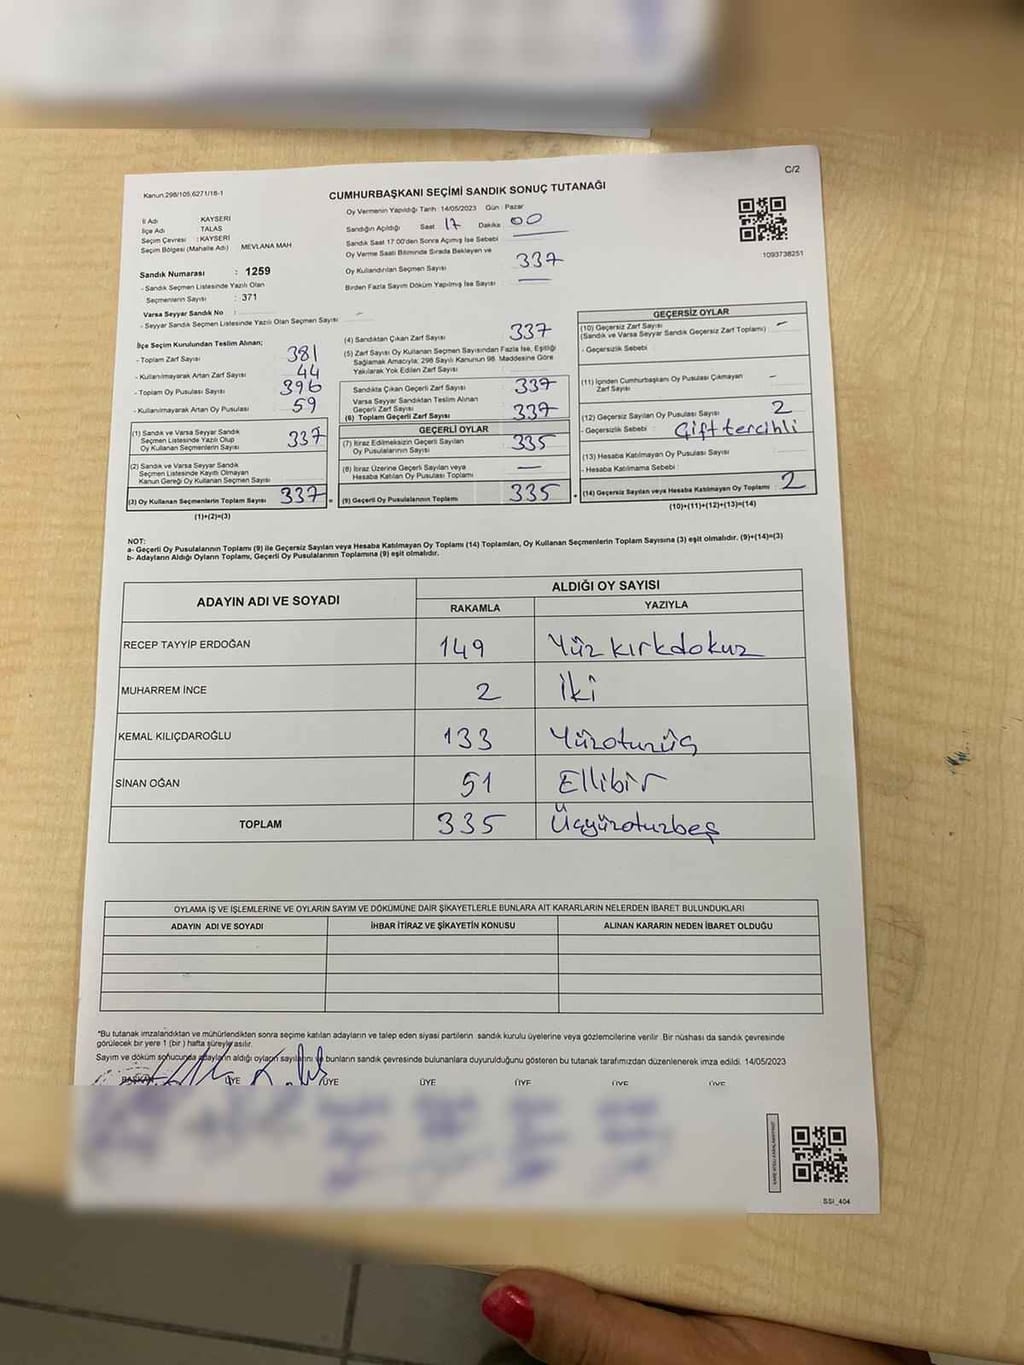 Kanun.298/105,6271/18-1
C/2
CUMHURBAŞKANI SEÇİMİ SANDIK SONUÇ TUTANAĞI
İl Adı : KAYSERİ
İlçe Adı : TALAS
Seçim Çevresi : KAYSERİ
Seçim Bölgesi (Mahalle Adı) MEVLANA MAH
Sandık Numarası : 1259
- Sandık Seçmen Listesinde Yazılı Olan
Seçmenlerin Sayısı : 371
Varsa Seyyar Sandık No :
- Seyyar Sandık Seçmen Listesinde Yazılı Olan Seçmen Sayısı
Oy Vermenin Yapıldığı Tarih : 14/05/2023 Gün : Pazar
Sandığın Açıldığı Saat 17 Dakika 00
Sandık Saat 17:00'den Sonra Açımış İse Sebebi
Oy Verme Saati Bitiminde Sırada Bekleyen ve
Oy Kullandırılan Seçmen Sayısı 337
Birden Fazla Sayım Döküm Yapılmış İse Sayısı —
1093738251
İlçe Seçim Kurulundan Teslim Alınan;
- Toplam Zarf Sayısı 381
- Kullanılmayarak Artan Zarf Sayısı 44
- Toplam Oy Pusulası Sayısı 396
- Kullanılmayarak Artan Oy Pusulası 59
(1) Sandık ve Varsa Seyyar Sandık
Seçmen Listesinde Yazılı Olup
Oy Kullanan Seçmenlerin Sayısı 337
(2) Sandık ve Varsa Seyyar Sandık
Seçmen Listesinde Kayıtlı Olmayan
Kanun Gereği Oy Kullanan Seçmen Sayısı
(3) Oy Kullanan Seçmenlerin Toplam Sayısı 337
(1)+(2)=(3)
(4) Sandıktan Çıkan Zarf Sayısı 337
(5) Zarf Sayısı Oy Kullanan Seçmen Sayısından Fazla İse, Eşitliği
Sağlamak Amacıyla; 298 Sayılı Kanunun 98. Maddesine Göre
Yakılarak Yok Edilen Zarf Sayısı
Sandıkta Çıkan Geçerli Zarf Sayısı 337
Varsa Seyyar Sandıktan Teslim Alınan
Geçerli Zarf Sayısı
(6) Toplam Geçerli Zarf Sayısı 337
GEÇERLİ OYLAR
(7) İtiraz Edilmeksizin Geçerli Sayılan
Oy Pusulalarının Sayısı 335
(8) İtiraz Üzerine Geçerli Sayılan veya
Hesaba Katılan Oy Pusulası Toplamı —
(9) Geçerli Oy Pusulalarının Toplamı 335
GEÇERSİZ OYLAR
(10) Geçersiz Zarf Sayısı
(Sandık ve Varsa Seyyar Sandık Geçersiz Zarf Toplamı) : —
- Geçersizlik Sebebi
(11) İçinden Cumhurbaşkanı Oy Pusulası Çıkmayan
Zarf Sayısı —
(12) Geçersiz Sayılan Oy Pusulası Sayısı 2
- Geçersizlik Sebebi : Çift tercihli
(13) Hesaba Katılmayan Oy Pusulası Sayısı
- Hesaba Katılmama Sebebi
(14) Geçersiz Sayılan veya Hesaba Katılmayan Oy Toplamı 2
(10)+(11)+(12)+(13)=(14)
NOT:
a- Geçerli Oy Pusulalarının Toplamı (9) ile Geçersiz Sayılan veya Hesaba Katılmayan Oy Toplamı (14) Toplamları, Oy Kullanan Seçmenlerin Toplam Sayısına (3) eşit olmalıdır. (9)+(14)=(3)
b- Adayların Aldığı Oyların Toplamı, Geçerli Oy Pusulalarının Toplamına (9) eşit olmalıdır.
ADAYIN ADI VE SOYADI
ALDIĞI OY SAYISI
RAKAMLA YAZIYLA
RECEP TAYYİP ERDOĞAN 149 Yüz kırkdokuz
MUHARREM İNCE 2 İki
KEMAL KILIÇDAROĞLU 133 Yüzotuzüç
SİNAN OĞAN 51 Ellibir
TOPLAM 335 Üçyüzotuzbeş
OYLAMA İŞ VE İŞLEMLERİNE VE OYLARIN SAYIM VE DÖKÜMÜNE DAİR ŞİKAYETLERLE BUNLARA AİT KARARLARIN NELERDEN İBARET BULUNDUKLARI
ADAYIN ADI VE SOYADI İHBAR İTİRAZ VE ŞİKAYETİN KONUSU ALINAN KARARIN NEDEN İBARET OLDUĞU
*Bu tutanak imzalandıktan ve mühürlendikten sonra seçime katılan adayların ve talep eden siyasi partilerin sandık kurulu üyelerine veya gözlemcilerine verilir. Bir nüshası da sandık çevresinde
görülecek bir yere 1 (bir) hafta süreyle asılır.
Sayım ve döküm sonucunda adayların aldığı oyların sayılarını ve bunların sandık çevresinde bulunanlara duyurulduğunu gösteren bu tutanak tarafımızdan düzenlenerek imza edildi. 14/05/2023
BAŞKAN ÜYE ÜYE ÜYE ÜYE ÜYE ÜYE
SSI_404